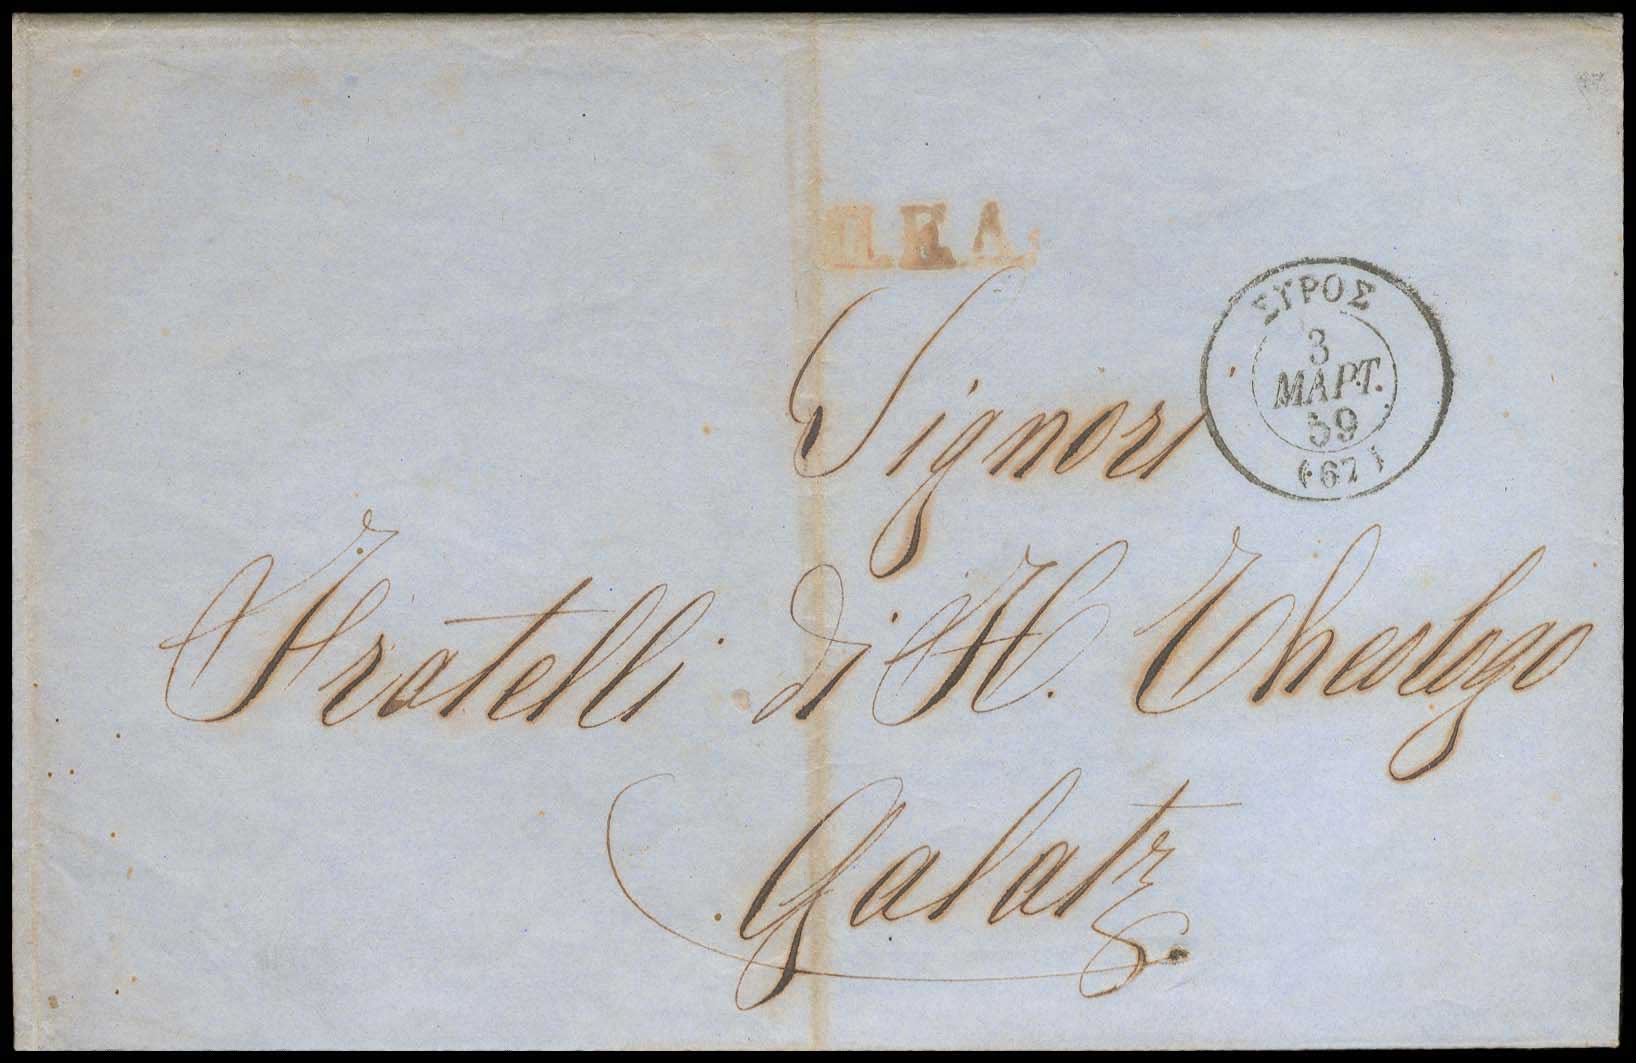 Π.Κ.Δ.
ΣΥΡΟΣ
3
ΜΑΡΤ.
59
(67)
Signori
Fratelli di H. Theologo
Galatz